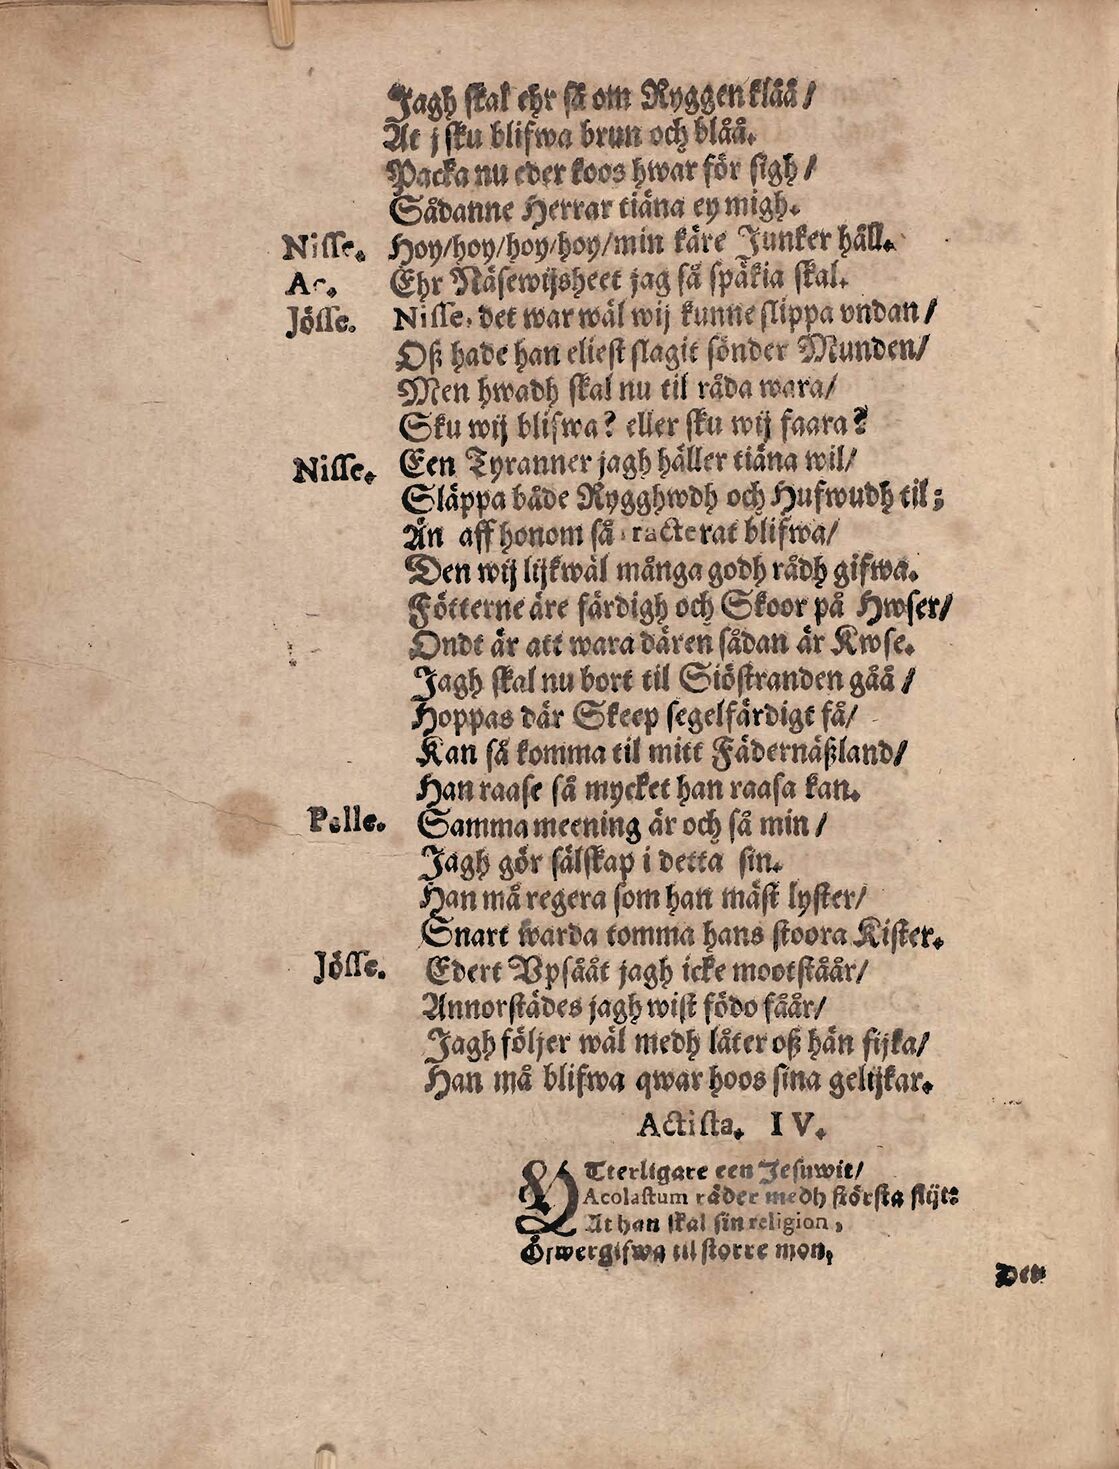 Jagh skal ehr så om Ryggen klåå/
At j sku blifwa brun och blåå.
Packa nu eder koos hwar för sigh/
Sådanne Herrar tiäna ey migh.
Nisse. Hoy/hoy/hoy/hoy/min käre Junker håll.
Ac. Ehr Näsewijsheet jag så späkia skal.
Jösse. Nisse, det war wäl wij kunne slippa vndan/
Oß hade han eliest slagit sönder Munden/
Men hwadh skal nu til råda wara/
Sku wij blifwa? eller sku wij faara?
Nisse. Een Tyranner jagh häller tiäna wil/
Släppa både Rygghwdh och Hufwudh til;
Än aff honom så tracterat blifwa/
Den wij lijkwäl många godh rådh gifwa.
Fötterne äre färdigh och Skoor på Hwser/
Ondt är att wara dären sådan är Kwse.
Jagh skal nu bort til Siöstranden gåå/
Hoppas där Skeep segelfärdigt få/
Kan så komma til mitt Fädernäßland/
Han raase så mycket han raasa kan.
Pelle. Samma meening är och så min/
Jagh gör sälskap i detta sin.
Han må regera som han mäst lyster/
Snart warda tomma hans stoora Kister.
Jösse. Edert Vpsååt jagh icke mootståår/
Annorstädes jagh wist födo fåår/
Jagh följer wäl medh låter oß hän fijka/
Han må blifwa qwar hoos sina gelijkar.
Actista. IV.
YTterligare een Jesuwit/
Acolastum råder medh största flijt:
At han skal sin religion,
Öfwergifwa til större mon,
Den